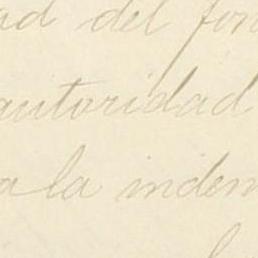 ad del fon
autoridad
a la indem